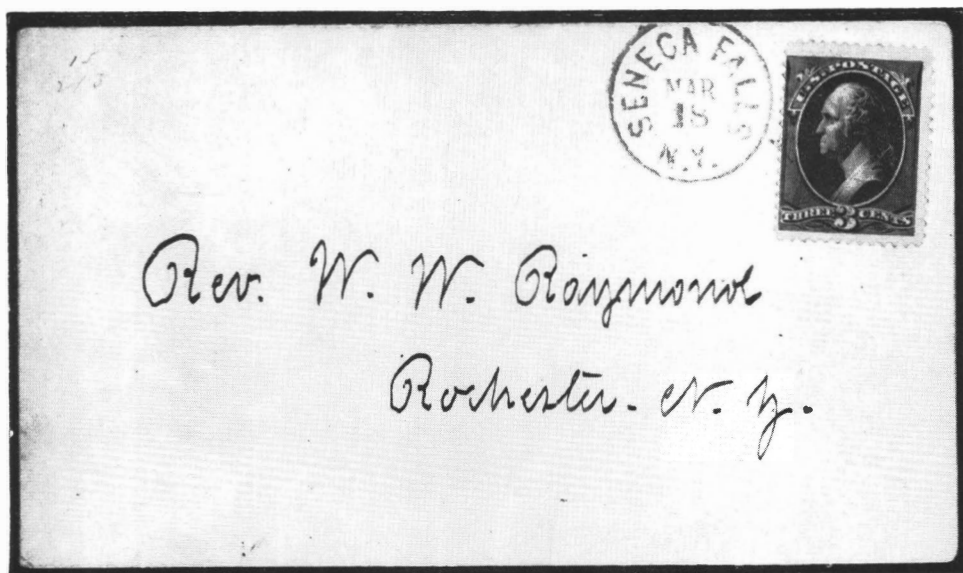 SENECA FALLS
MAR
18
N.Y.
U.S. POSTAGE
THREE 3 CENTS
Rev. W. W. Raymond
Rochester. N. Y.